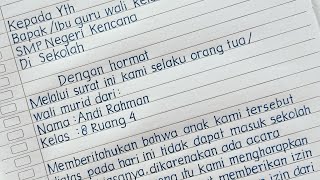 Kepada Yth
Bapak/Ibu guru wali kelas
SMP Negeri Kencana
Di Sekolah
Dengan hormat
Melalui surat ini kami selaku orang tua/
wali murid dari:
Nama : Andi Rahman
Kelas : 8 Ruang 4
Memberitahukan bahwa anak kami tersebut
diatas pada hari ini tidak dapat masuk sekolah
dikarenakan ada acara
itu kami mengharapkan
memberikan izin
izin dari